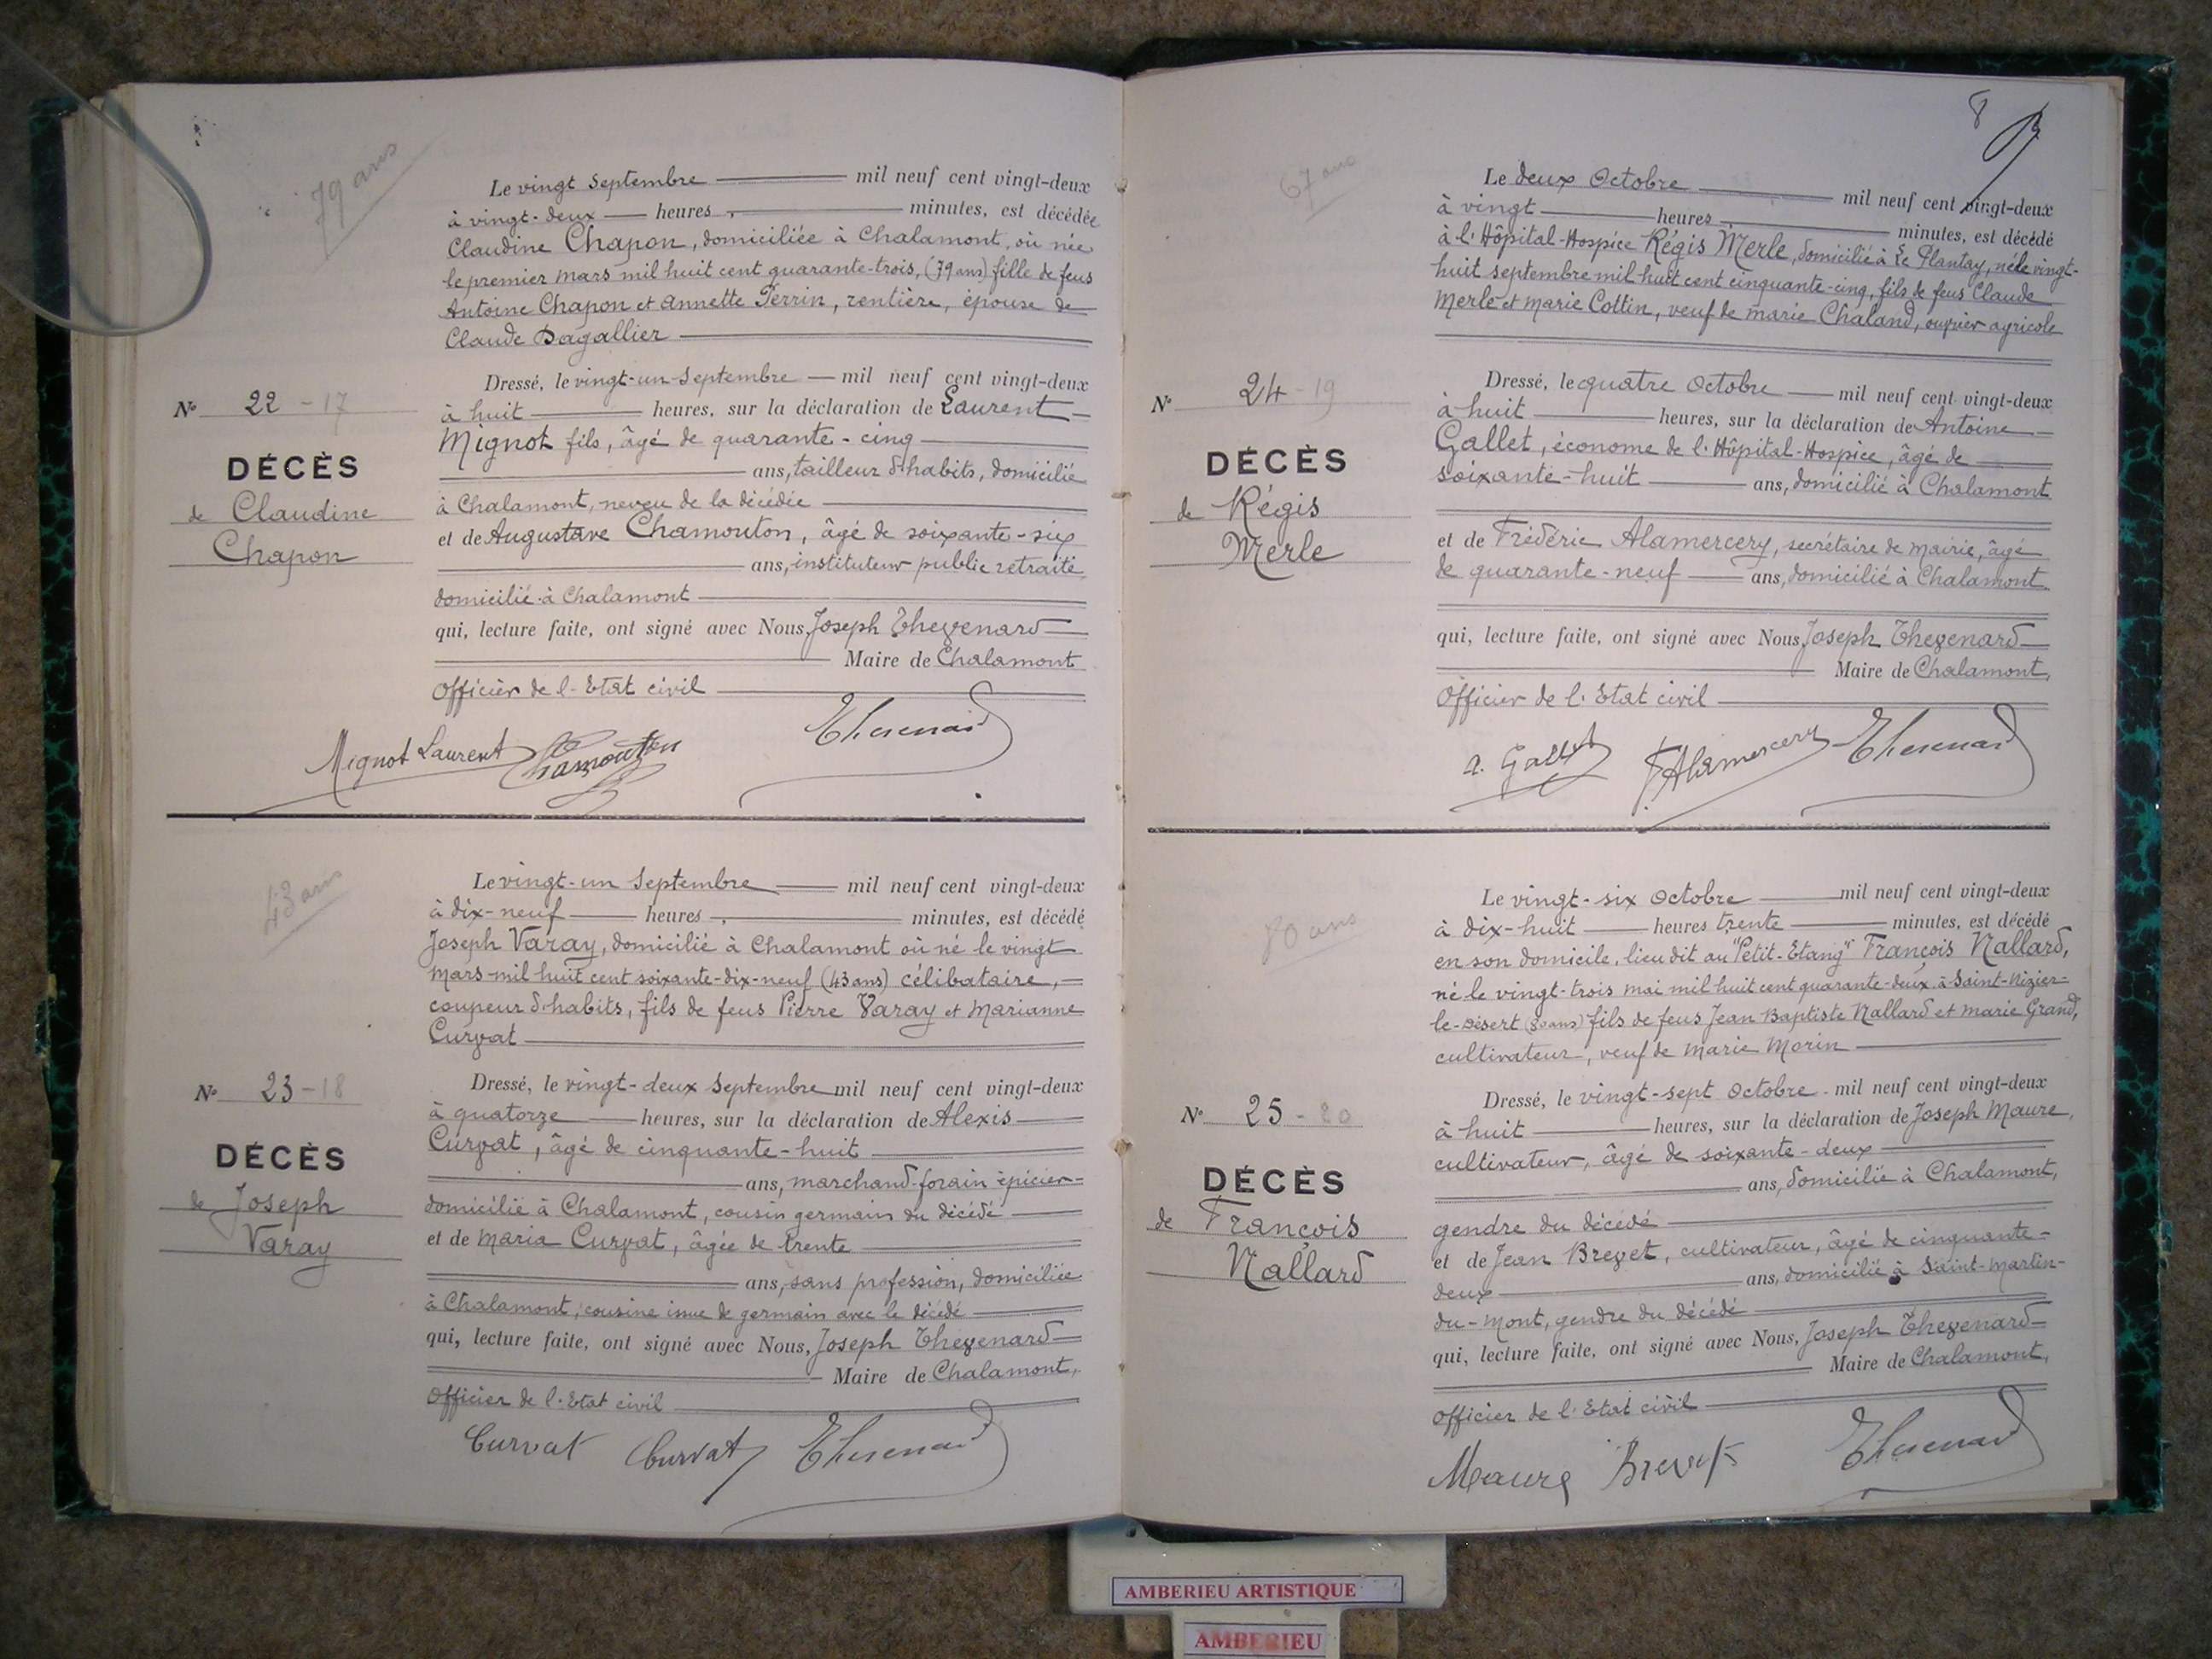 79 ans
Le vingt Septembre mil neuf cent vingt-deux
à vingt-deux heures, minutes, est décédée
Claudine Chapon, domiciliée à Chalamont, où née
le premier mars mil huit cent quarante-trois, (79 ans) fille de feus
Antoine Chapon et Annette Perrin, rentière, épouse de
Claude Dagallier
Dressé, le vingt-un Septembre mil neuf cent vingt-deux
à huit heures, sur la déclaration de Laurent
Mignot fils, âgé de quarante-cinq
ans, tailleur d'habits, domicilié
à Chalamont, neveu de la décédée
et de Augustave Chamouton, âgé de soixante-six
ans, instituteur public retraité
domicilié à Chalamont
qui, lecture faite, ont signé avec Nous, Joseph Thevenard
Maire de Chalamont
Officier de l'Etat civil
Mignot Laurent Chamouton Thevenard
No 22 - 17
DÉCÈS
de Claudine
Chapon
43 ans
Le vingt-un Septembre mil neuf cent vingt-deux
à dix-neuf heures, minutes, est décédé
Joseph Varay, domicilié à Chalamont où né le vingt
mars mil huit cent soixante-dix-neuf (43 ans) célibataire,
coupeur d'habits, fils de feus Pierre Varay et Marianne
Curvat
Dressé, le vingt-deux Septembre mil neuf cent vingt-deux
à quatorze heures, sur la déclaration de Alexis
Curvat, âgé de cinquante-huit
ans, marchand-forain épicier
domicilié à Chalamont, cousin germain du décédé
et de Maria Curvat, âgée de trente
ans, sans profession, domiciliée
à Chalamont, cousine issue de germain avec le décédé
qui, lecture faite, ont signé avec Nous, Joseph Thevenard
Maire de Chalamont,
Officier de l'Etat civil
Curvat Curvat Thevenard
No 23 - 18
DÉCÈS
de Joseph
Varay
8
67 ans
Le deux Octobre mil neuf cent vingt-deux
à vingt heures minutes, est décédé
à l'Hôpital-Hospice Régis Merle, domicilié à Le Plantay, né le vingt-
huit septembre mil huit cent cinquante-cinq, fils de feus Claude
Merle et Marie Cottin, veuf de Marie Chaland, ouvrier agricole
Dressé, le quatre Octobre mil neuf cent vingt-deux
à huit heures, sur la déclaration de Antoine
Gallet, économe de l'Hôpital-Hospice, âgé de
soixante-huit ans, domicilié à Chalamont
et de Frédéric Alamercery, secrétaire de mairie, âgé
de quarante-neuf ans, domicilié à Chalamont
qui, lecture faite, ont signé avec Nous, Joseph Thevenard
Maire de Chalamont,
Officier de l'Etat civil
A. Gallet F Alamercery Thevenard
No 24 - 19
DÉCÈS
de Régis
Merle
80 ans
Le vingt-six Octobre mil neuf cent vingt-deux
à dix-huit heures trente minutes, est décédé
en son domicile, lieu dit au "Petit-Etang" François Nallard,
né le vingt-trois mai mil huit cent quarante-deux à Saint-Nizier-
le-Désert (80 ans) fils de feus Jean Baptiste Nallard et Marie Grand,
cultivateur, veuf de Marie Morin
Dressé, le vingt-sept Octobre mil neuf cent vingt-deux
à huit heures, sur la déclaration de Joseph Maure,
cultivateur, âgé de soixante-deux
ans, domicilié à Chalamont,
gendre du décédé
et de Jean Brevet, cultivateur, âgé de cinquante-
deux ans, domicilié à Saint-Martin-
du-Mont, gendre du décédé
qui, lecture faite, ont signé avec Nous, Joseph Thevenard
Maire de Chalamont,
Officier de l'Etat civil
Maure Brevet Thevenard
No 25 - 20
DÉCÈS
de François
Nallard
AMBERIEU ARTISTIQUE
AMBERIEU